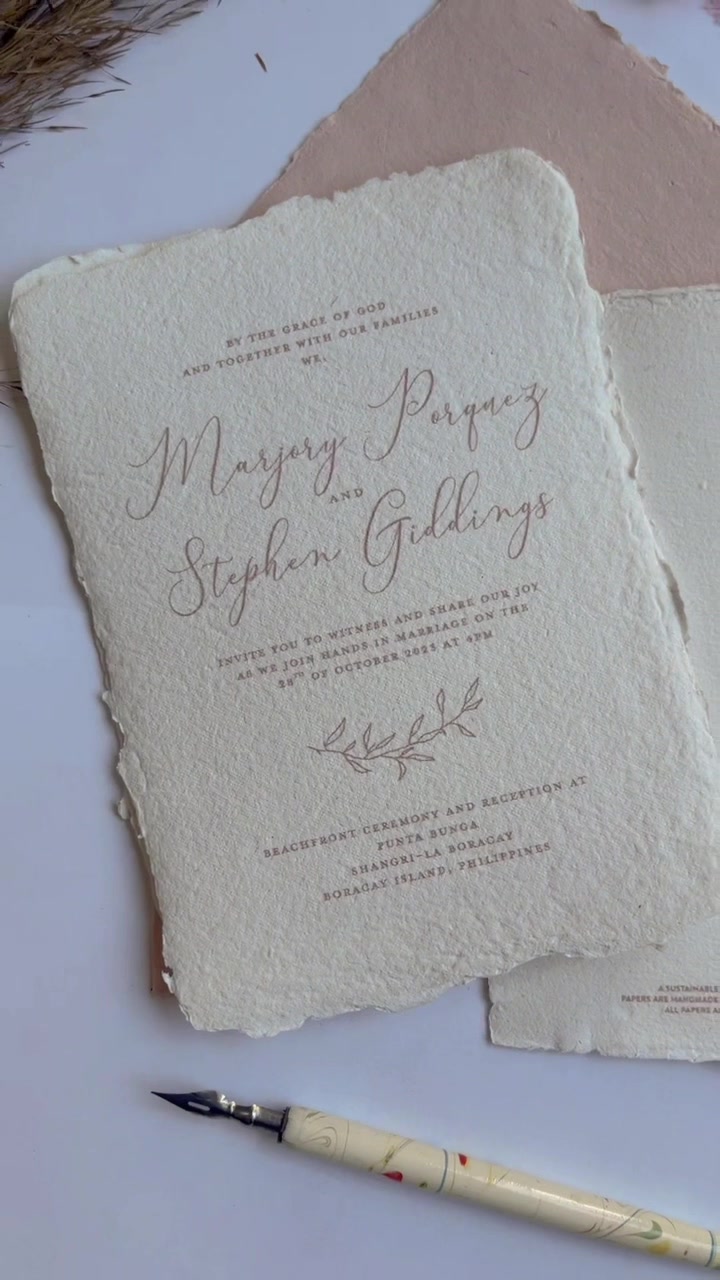 BY THE GRACE OF GOD
AND TOGETHER WITH OUR FAMILIES
WE,
Marjory Porquez
AND
Stephen Giddings
INVITE YOU TO WITNESS AND SHARE OUR JOY
AS WE JOIN HANDS IN MARRIAGE ON THE
28TH OF OCTOBER 2023 AT 4PM
BEACHFRONT CEREMONY AND RECEPTION AT
PUNTA BUNGA
SHANGRI-LA BORACAY
BORACAY ISLAND, PHILIPPINES
A SUSTAINABLE
PAPERS ARE HANDMADE
ALL PAPERS